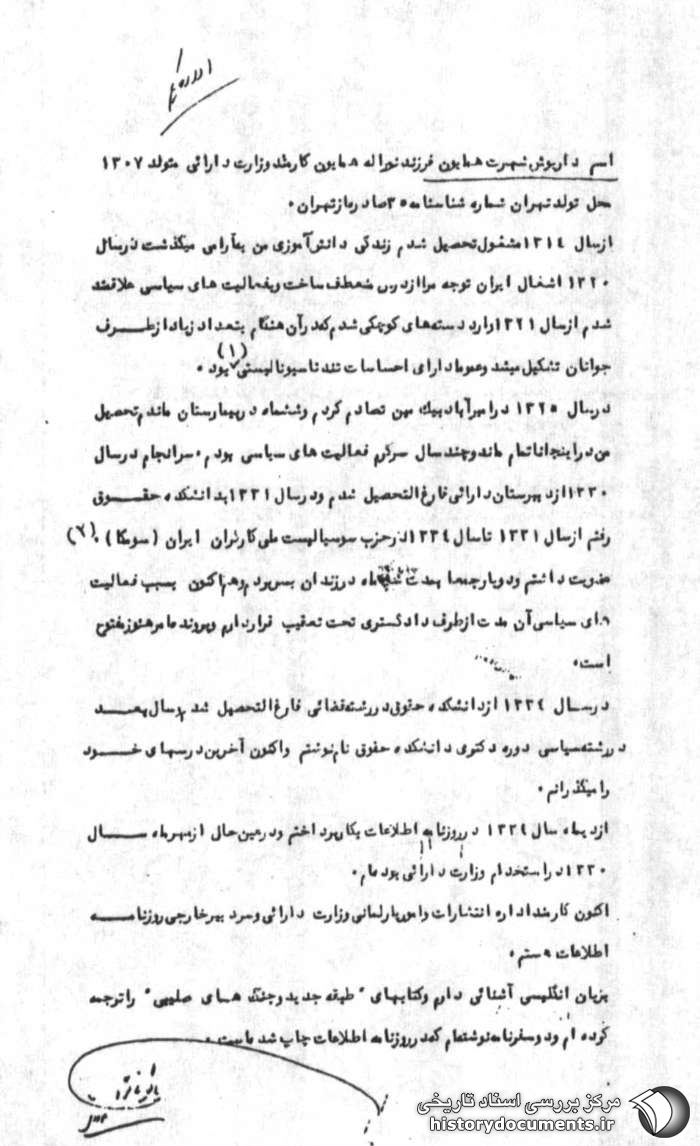 اسم داریوش شهرت همایون فرزند نوراله همایون کارمند وزارت دارائی متولد ۱۳۰۷
محل تولد تهران شماره شناسنامه ۳۵ صادره از تهران .
از سال ۱۳۱۴ مشغول تحصیل شدم زندگی دانش آموزی من بآرامی میگذشت در سال
۱۳۲۰ اشغال ایران توجه مرا از درس منعطف ساخت و بفعالیت های سیاسی علاقمند
شدم از سال ۱۳۲۱ وارد دسته های کوچکی شدم که در آن هنگام بتعداد زیاد از طرف
جوانان تشکیل میشد و عموما دارای احساسات تند ناسیونالیستی (۱) بود .
در سال ۱۳۲۵ در امیرآباد بیک مین تصادم کردم و ششماه در بیمارستان ماندم تحصیل
من در اینجا ناتمام ماند و چند سال سرگرم فعالیت های سیاسی بودم . سرانجام در سال
۱۳۳۰ از دبیرستان دارائی فارغ التحصیل شدم و در سال ۱۳۳۱ بدانشکده حقوق
رفتم از سال ۱۳۳۱ تا سال ۱۳۳۴ در حزب سوسیالیست ملی کارگران ایران ( سومکا ) . (۲)
عضویت داشتم و دوبار جمعا بمدت ماه در زندان بسر بردم و هم اکنون بسبب فعالیت
های سیاسی آن مدت از طرف دادگستری تحت تعقیب قرار دارم و پرونده ام هنوز مفتوح
است .
در سال ۱۳۳۴ از دانشکده حقوق در رشته قضائی فارغ التحصیل شدم سال بعد
در رشته سیاسی دوره دکتری دانشکده حقوق نام نوشتم و اکنون آخرین درسهای خود
را میگذرانم .
از دیماه سال ۱۳۳۴ در روزنامه اطلاعات بکار پرداختم و در عین حال از مهرماه سال
۱۳۳۰ در استخدام وزارت دارائی بوده ام .
اکنون کارمند اداره انتشارات و امور پارلمانی وزارت دارائی و سردبیر خارجی روزنامه
اطلاعات هستم .
بزبان انگلیسی آشنائی دارم و کتابهای " طبقه جدید و جنگ های صلیبی " را ترجمه
کرده ام و دو سفرنامه نوشته ام که در روزنامه اطلاعات چاپ شده است .
مرکز بررسی اسناد تاریخی
historydocuments.ir